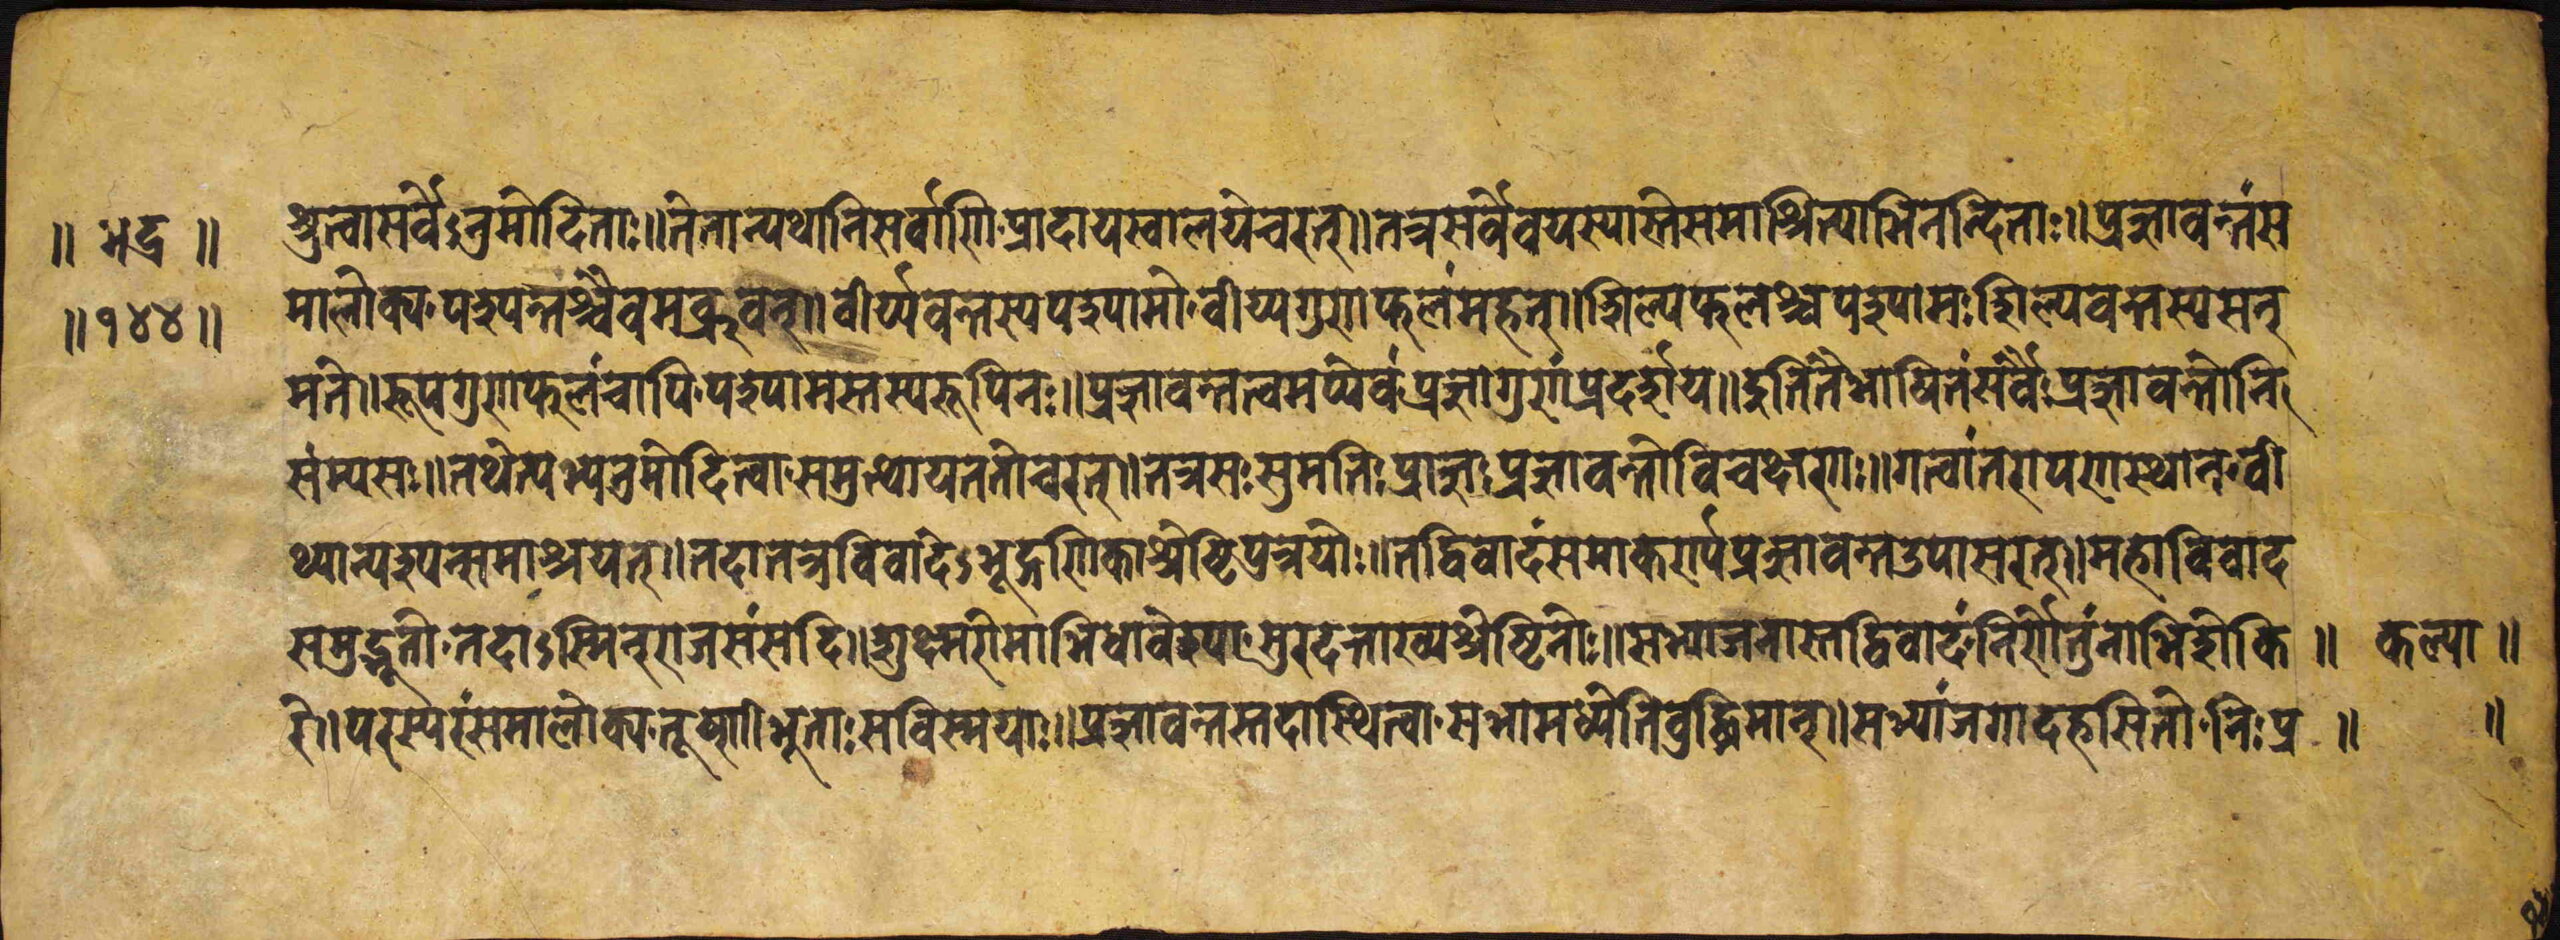 ॥ भद्र ॥ श्रुत्वा सर्वेऽनुमोदिताः ॥ तेनान्यथानि सर्वाणि प्रादाय स्वालये चरत् ॥ तत्र सर्वे वयस्यास्ते समाश्रित्याभिनन्दिताः ॥ प्रज्ञावन्तं स
॥ १४४ ॥ मालोक्य पश्यन्तश्चैवमब्रुवन् ॥ वीर्य्यवन्तस्य पश्यामो वीर्य्यगुणफलं महत् ॥ शिल्पफलञ्च पश्यामः शिल्पवन्तस्य सन्
मते ॥ रूपगुणफलं चापि पश्यामस्तस्य रूपिनः ॥ प्रज्ञावन्तत्वमप्येवं प्रज्ञागुणं प्रदर्शय ॥ इति तै भाषितं सर्वैः प्रज्ञावन्तो नि
संम्य सः ॥ तथेत्यभ्यनुमोदित्वा समुत्थाय ततो चरत् ॥ तत्र सः सुमतिः प्राज्ञः प्रज्ञावन्तो विचक्षणः ॥ गत्वांतरापणस्थान वी
थ्यान्पश्यन्समाश्रयत् ॥ तदा तत्र विवादेऽभूद्गणिका श्रेष्ठिपुत्रयोः ॥ तद्विवादं समाकर्ण्य प्रज्ञावन्त उपासरत् ॥ महाविवाद
समुद्भूतो तदाऽस्मिन् राजसंसदि ॥ माभिधावेश्या सुरदत्ताख्यश्रेष्ठिनोः ॥ सभ्याजनास्तद्विवादं निर्णेतुं नाभिशेकि ॥ कल्या ॥
रे ॥ परस्परं समालोक्य तूष्णीभुताः सविस्मयाः ॥ प्रज्ञावन्तस्तदा स्थित्वा सभामध्ये तिबुद्धिमान् ॥ सभ्यां जगाद हसितो निःप्र ॥ ॥